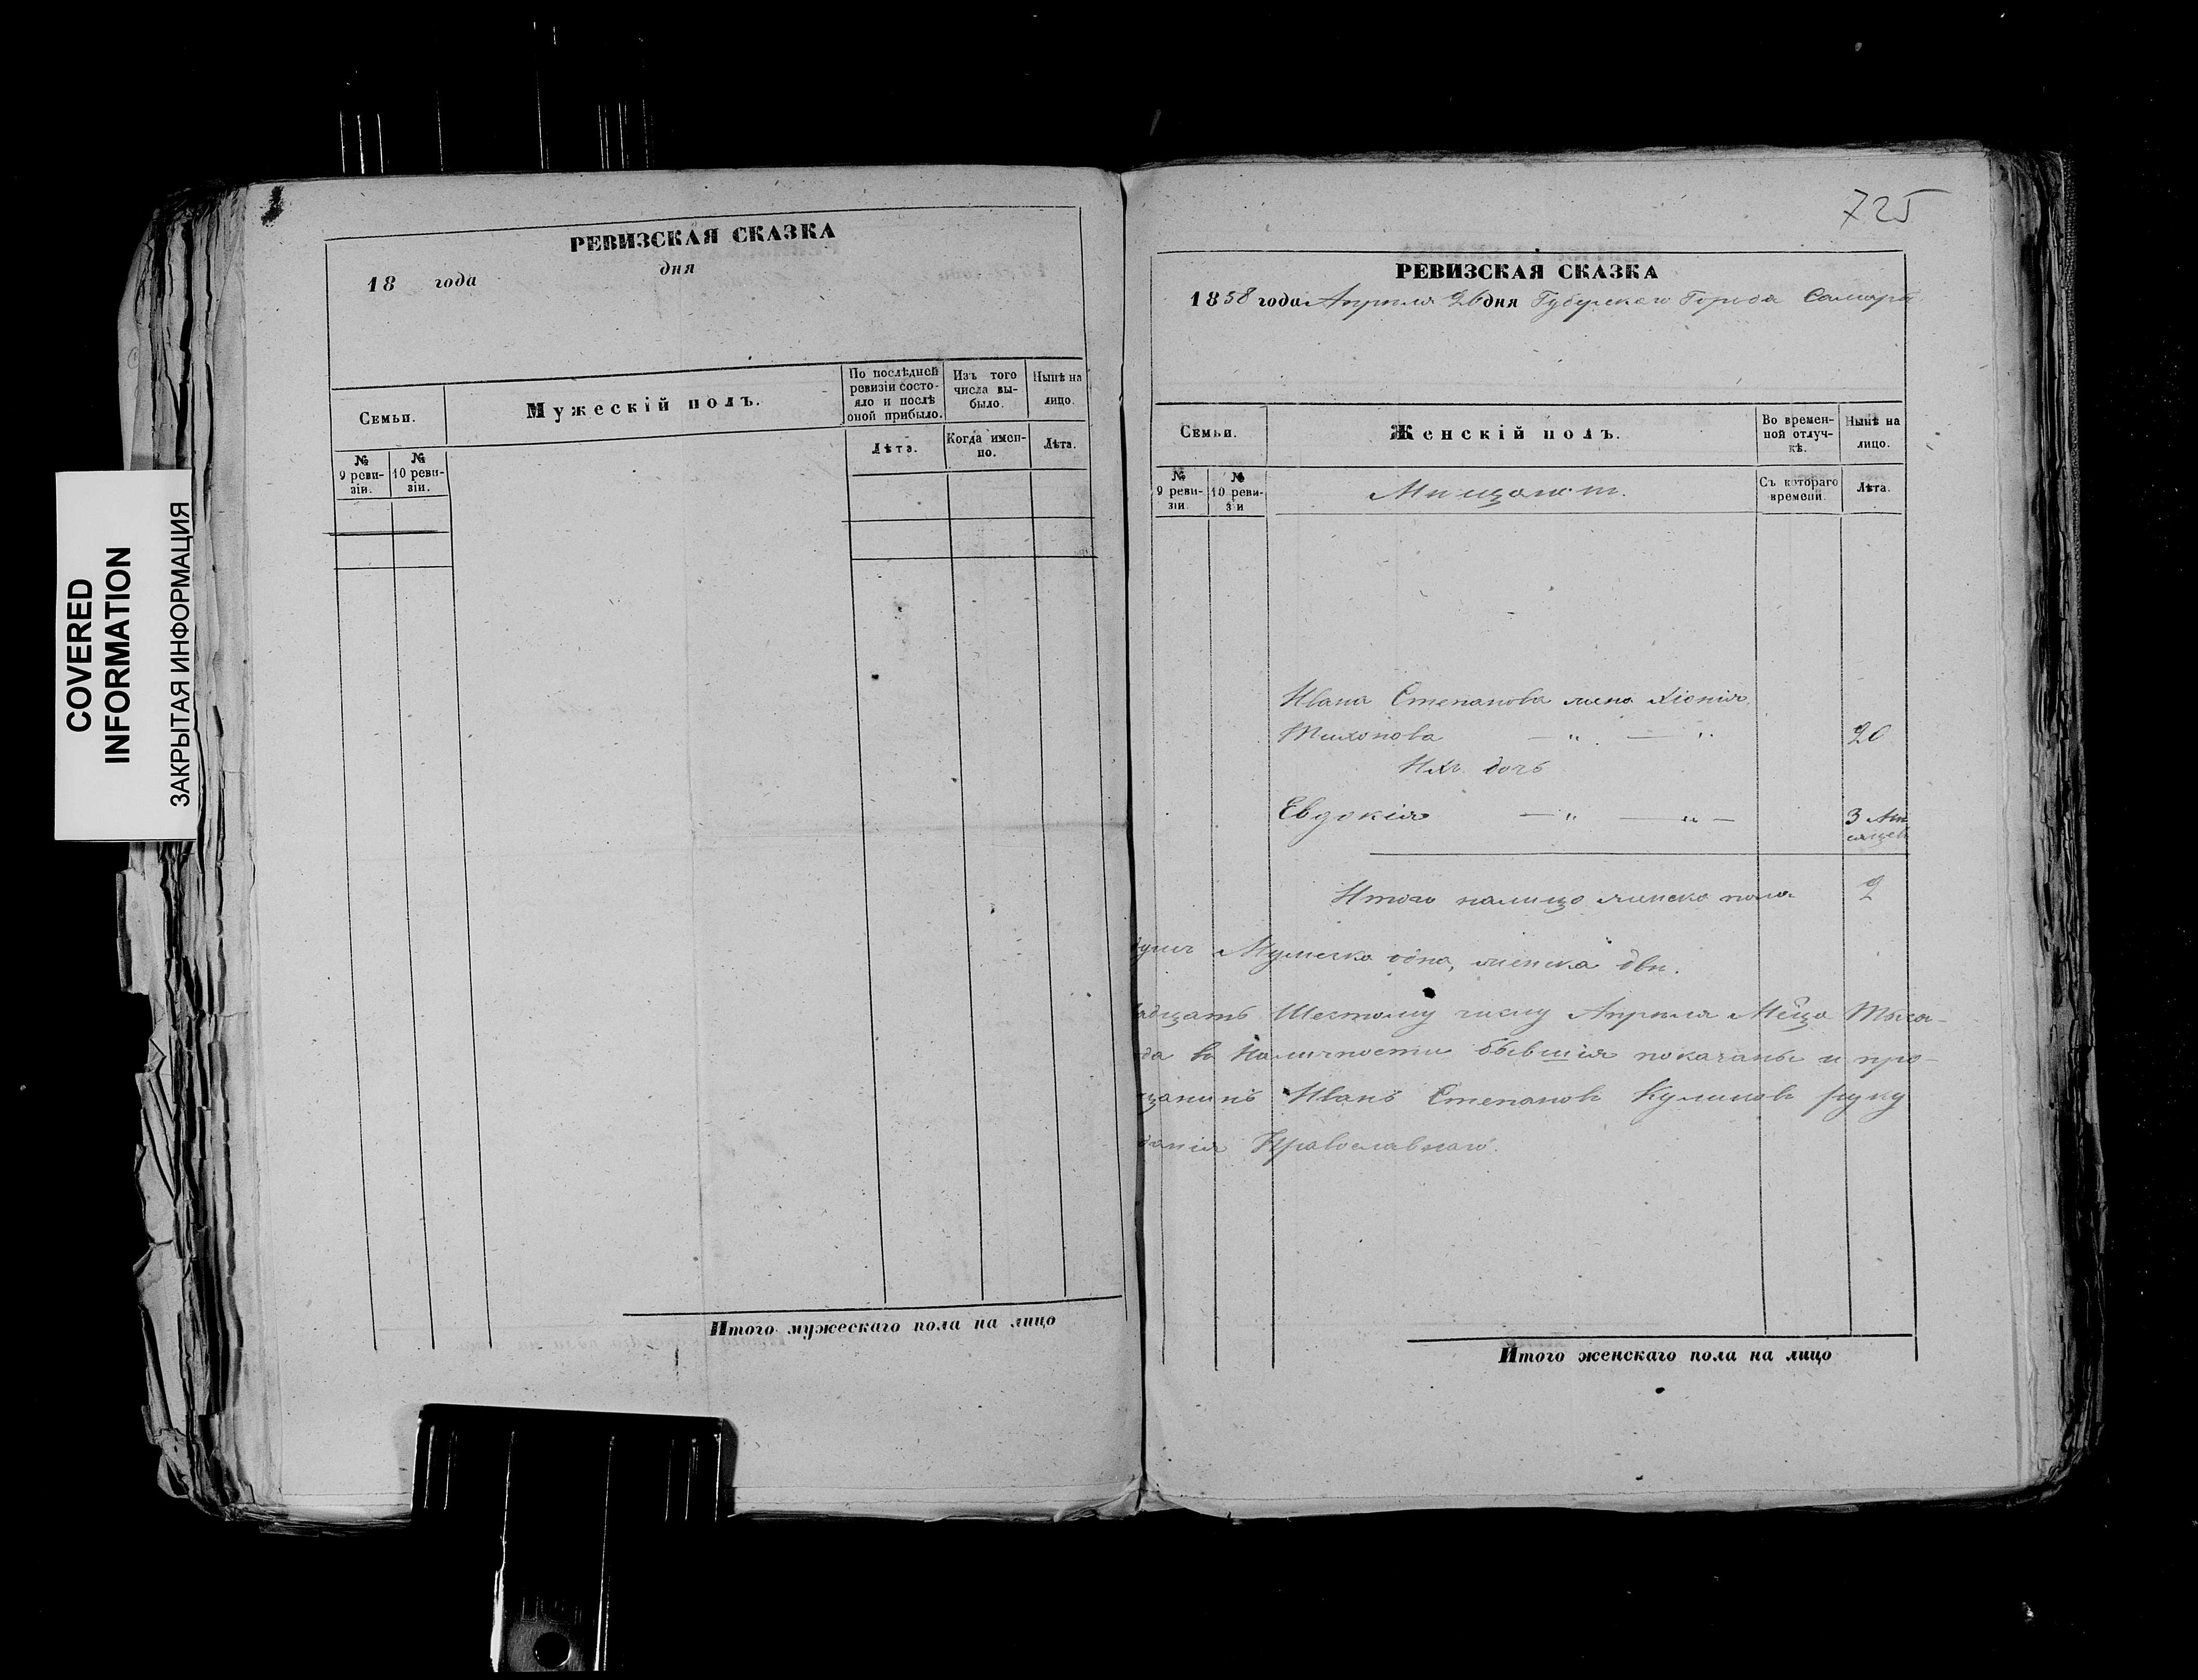 COVERED
INFORMATION
ЗАКРЫТАЯ ИНФОРМАЦИЯ
РЕВИЗСКАЯ СКАЗКА
18 года дня
Семьи.
Мужескій полъ.
По послѣдней ревизіи состояло и послѣ оной прибыло.
Изъ того числа выбыло.
Нынѣ на лицо.
№ 9 ревизіи.
№ 10 ревизіи.
Лѣта.
Когда именно.
Лѣта.
Итого мужескаго пола на лицо
725
РЕВИЗСКАЯ СКАЗКА
1858 года Апреля 26 дня Губернскаго Города Самары
Семьи.
Женскій полъ.
Во временной отлучкѣ.
Нынѣ на лицо.
№ 9 ревизіи.
№ 10 ревизи
Мещане
Съ котораго времени.
Лѣта.
Ивана Степанова жена Хіонія
Тихонова — " — " 20
Ихъ дочь
Евдокія — " — " — 3 Ме
сяцев
Итого налицо женска пола 2
душъ Мужеска одна, женска две.
адцать Шестому числу Апреля Меца Тыся-
да в Наличности бывшія показаны и про-
щанинъ Иванъ Степановъ Куликов руку
данія Православнаго.
Итого женскаго пола на лицо